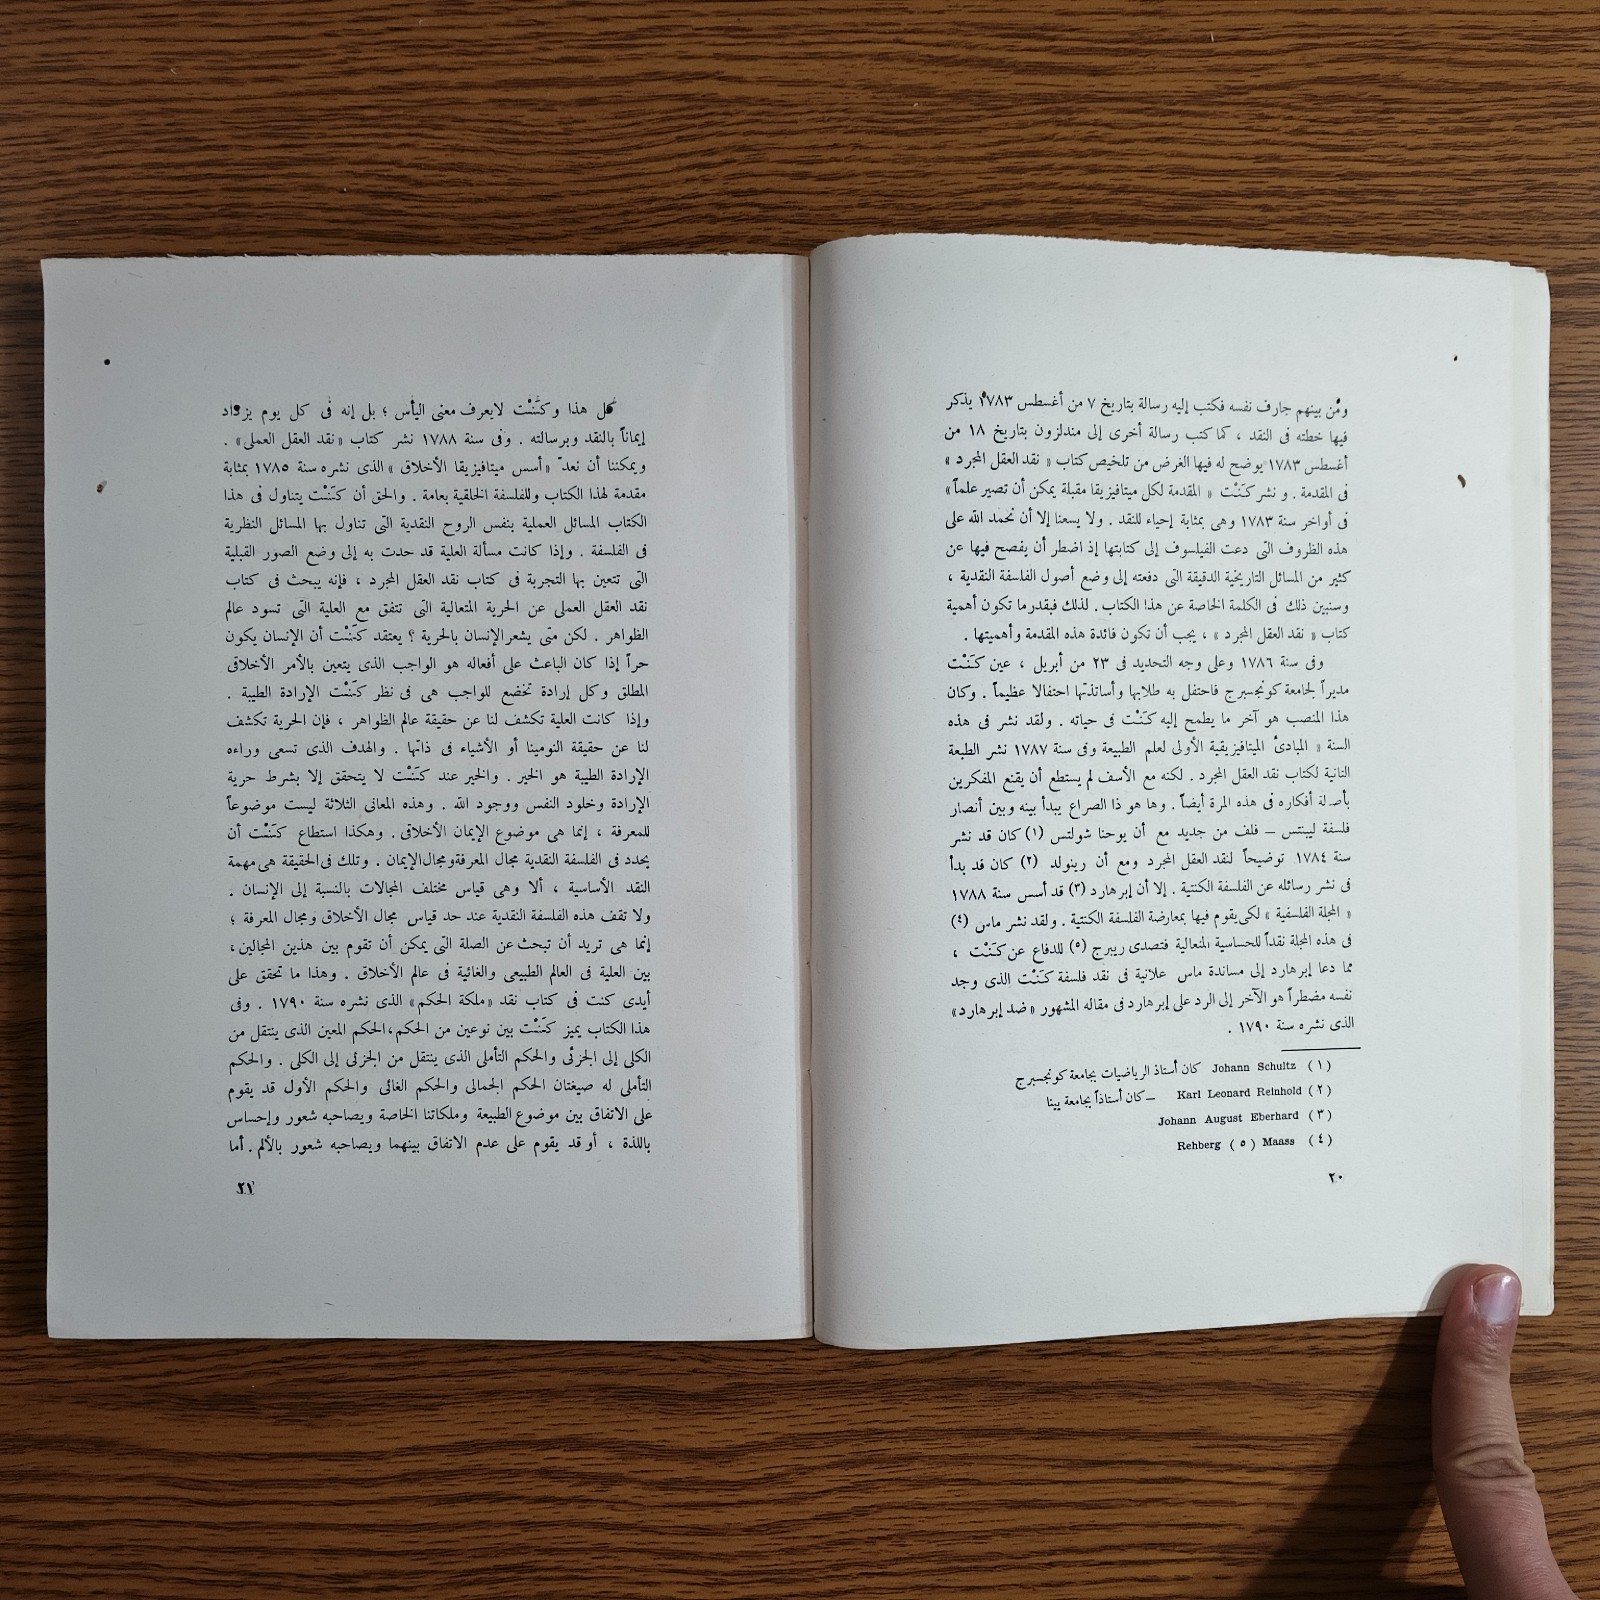 ومن بينهم جارف نفسه فكتب إليه رسالة بتاريخ ٧ من أغسطس ١٧٨٣ يذكر
فيها خطته فى النقد ، كما كتب رسالة أخرى إلى مندلزون بتاريخ ١٨ من
أغسطس ١٧٨٣ يوضح له فيها الغرض من تلخيص كتاب « نقد العقل المجرد »
فى المقدمة . و نشر كَنْت « المقدمة لكل ميتافيزيقا مقبلة يمكن أن تصير علماً »
فى أواخر سنة ١٧٨٣ وهى بمثابة إحياء للنقد . ولا يسعنا إلا أن نحمد الله على
هذه الظروف التى دعت الفيلسوف إلى كتابتها إذ اضطر أن يفصح فيها عن
كثير من المسائل التاريخية الدقيقة التى دفعته إلى وضع أصول الفلسفة النقدية ،
وسنبين ذلك فى الكلمة الخاصة عن هذا الكتاب . لذلك فبقدر ما تكون أهمية
كتاب « نقد العقل المجرد » ، يجب أن تكون فائدة هذه المقدمة وأهميتها .
وفى سنة ١٧٨٦ وعلى وجه التحديد فى ٢٣ من أبريل ، عين كَنْت
مديراً لجامعة كونجسبرج فاحتفل به طلابها وأساتذتها احتفالا عظيماً . وكان
هذا المنصب هو آخر ما يطمح إليه كَنْت فى حياته . ولقد نشر فى هذه
السنة « المبادئ الميتافيزيقية الأولى لعلم الطبيعة وفى سنة ١٧٨٧ نشر الطبعة
الثانية لكتاب نقد العقل المجرد . لكنه مع الأسف لم يستطع أن يقنع المفكرين
بأصالة أفكاره فى هذه المرة أيضاً . وها هو ذا الصراع يبدأ بينه وبين أنصار
فلسفة ليبنتس – فلف من جديد مع أن يوحنا شولتس (١) كان قد نشر
سنة ١٧٨٤ توضيحاً لنقد العقل المجرد ومع أن رينولد (٢) كان قد بدأ
فى نشر رسائله عن الفلسفة الكنتية . إلا أن إبرهارد (٣) قد أسس سنة ١٧٨٨
« المجلة الفلسفية » لكى يقوم فيها بمعارضة الفلسفة الكنتية . ولقد نشر ماس (٤)
فى هذه المجلة نقداً للحساسية المتعالية فتصدى ريبرج (٥) للدفاع عن كَنْت ،
مما دعا إبرهارد إلى مساندة ماس علانية فى نقد فلسفة كَنْت الذى وجد
نفسه مضطراً هو الآخر إلى الرد على إبرهارد فى مقاله المشهور « ضد إبرهارد »
الذى نشره سنة ١٧٩٠ .
(١) Johann Schultz كان أستاذ الرياضيات بجامعة كونجسبرج
(٢) Karl Leonard Reinhold – كان أستاذاً بجامعة يينا
(٣) Johann August Eberhard
(٤) Maass (٥) Rehberg
٢٠
كل هذا وكَنْت لايعرف معنى اليأس ؛ بل إنه فى كل يوم يزداد
إيماناً بالنقد وبرسالته . وفى سنة ١٧٨٨ نشر كتاب « نقد العقل العملى » .
ويمكننا أن نعدّ « أسس ميتافيزيقا الأخلاق » الذى نشره سنة ١٧٨٥ بمثابة
مقدمة لهذا الكتاب وللفلسفة الخلقية بعامة . والحق أن كَنْت يتناول فى هذا
الكتاب المسائل العملية بنفس الروح النقدية التى تناول بها المسائل النظرية
فى الفلسفة . وإذا كانت مسألة العلية قد حدت به إلى وضع الصور القبلية
التى تتعين بها التجربة فى كتاب نقد العقل المجرد ، فإنه يبحث فى كتاب
نقد العقل العملى عن الحرية المتعالية التى تتفق مع العلية التى تسود عالم
الظواهر . لكن متى يشعر الإنسان بالحرية ؟ يعتقد كَنْت أن الإنسان يكون
حراً إذا كان الباعث على أفعاله هو الواجب الذى يتعين بالأمر الأخلاقى
المطلق وكل إرادة تخضع للواجب هى فى نظر كَنْت الإرادة الطيبة .
وإذا كانت العلية تكشف لنا عن حقيقة عالم الظواهر ، فإن الحرية تكشف
لنا عن حقيقة النومينا أو الأشياء فى ذاتها . والهدف الذى تسعى وراءه
الإرادة الطيبة هو الخير . والخير عند كَنْت لا يتحقق إلا بشرط حرية
الإرادة وخلود النفس ووجود الله . وهذه المعانى الثلاثة ليست موضوعاً
للمعرفة ، إنما هى موضوع الإيمان الأخلاقى . وهكذا استطاع كَنْت أن
يحدد فى الفلسفة النقدية مجال المعرفة ومجال الإيمان . وتلك فى الحقيقة هى مهمة
النقد الأساسية ، ألا وهى قياس مختلف المجالات بالنسبة إلى الإنسان .
ولا تقف هذه الفلسفة النقدية عند حد قياس مجال الأخلاق ومجال المعرفة ؛
إنما هى تريد أن تبحث عن الصلة التى يمكن أن تقوم بين هذين المجالين ،
بين العلية فى العالم الطبيعى والغائية فى عالم الأخلاق . وهذا ما تحقق على
أيدى كنت فى كتاب نقد « ملكة الحكم » الذى نشره سنة ١٧٩٠ . وفى
هذا الكتاب يميز كَنْت بين نوعين من الحكم ، الحكم المعين الذى ينتقل من
الكلى إلى الجزئى والحكم التأملى الذى ينتقل من الجزئى إلى الكلى . والحكم
التأملى له صيغتان الحكم الجمالى والحكم الغائى والحكم الأول قد يقوم
على الاتفاق بين موضوع الطبيعة وملكاتنا الخاصة ويصاحبه شعور وإحساس
باللذة ، أو قد يقوم على عدم الاتفاق بينهما ويصاحبه شعور بالألم . أما
٢١